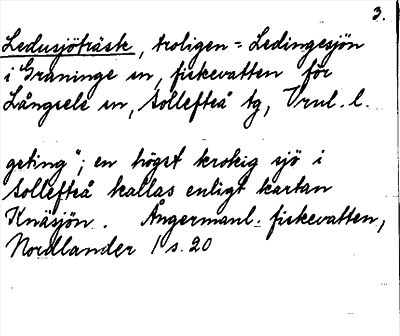 3.
Ledusjöträsk, troligen = Ledingesjön
i Graninge sn, fiskevatten för
Långsele sn, Sollefteå tg, Vrnl. l.
geting"; en högst krokig sjö i
Sollefteå kallas enligt kartan
Knäsjön. Ångermanl. fiskevatten,
Nordlander 1 s. 20